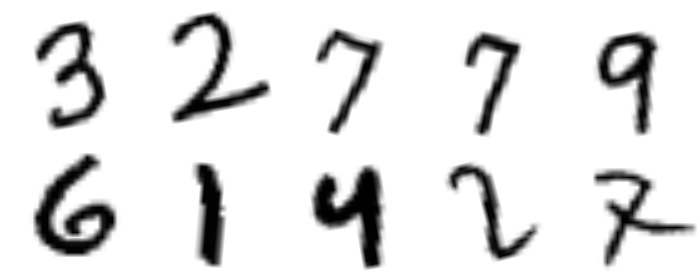 3 2 7 7 9
6 1 4 2 7